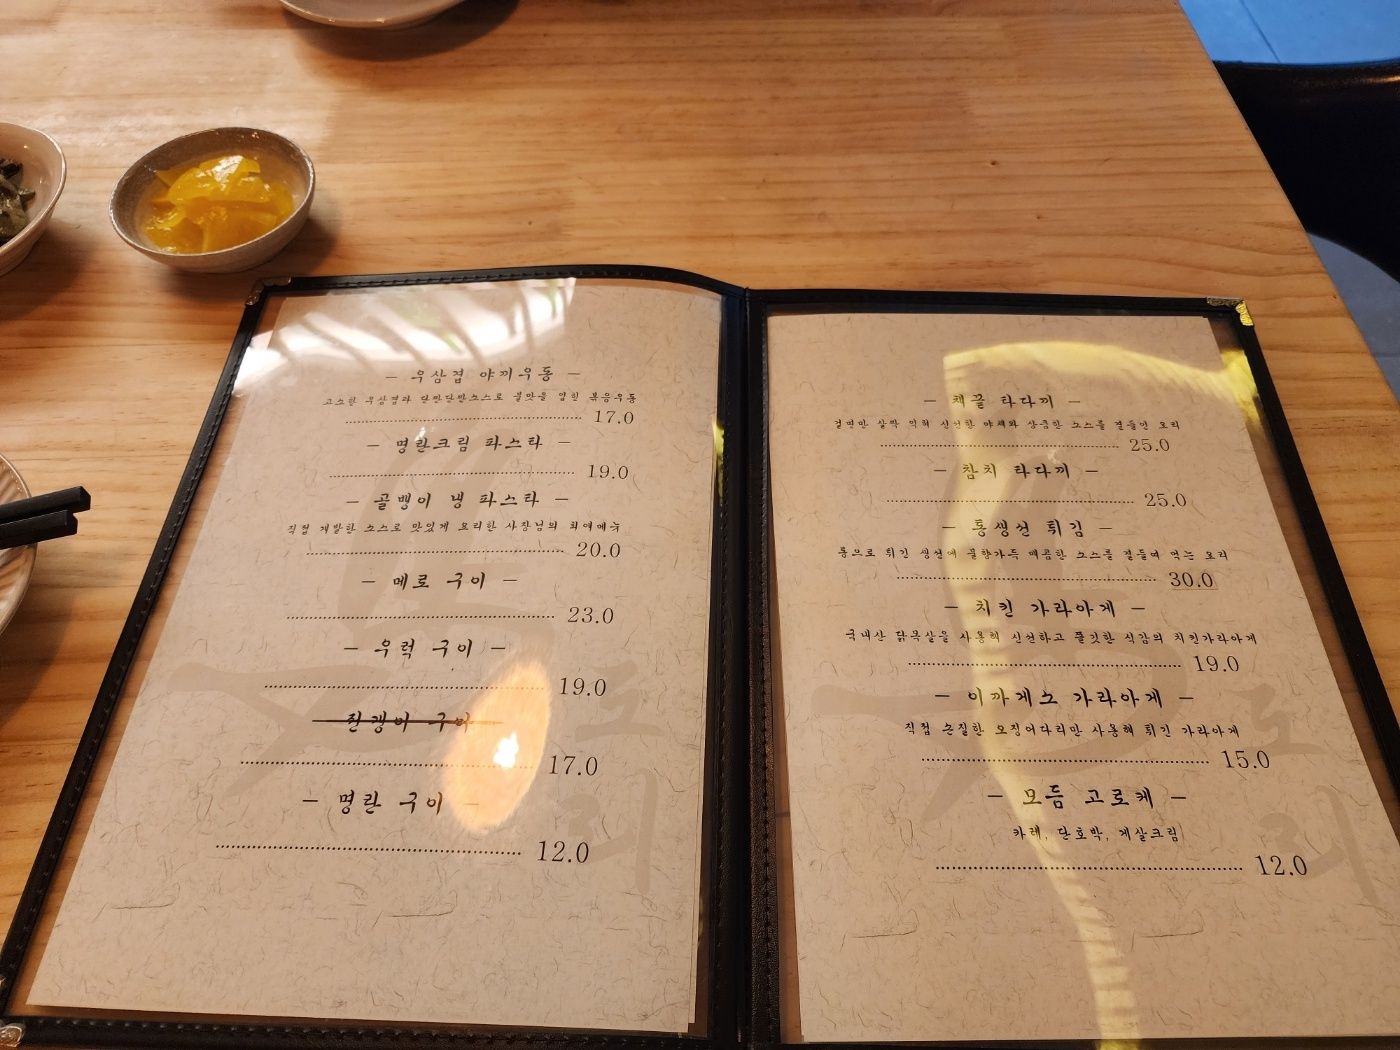 - 우삼겹 야끼우동 -
고소한 우삼겹과 단짠단짠소스로 불맛을 입힌 볶음우동
17.0
- 명란크림 파스타 -
19.0
- 골뱅이 냉 파스타 -
직접 개발한 소스로 맛있게 요리한 사장님의 최애메뉴
20.0
- 메로 구이 -
23.0
- 우럭 구이 -
19.0
- 전갱이 구이 -
17.0
- 명란 구이 -
12.0
- 채끝 타다끼 -
겉면만 살짝 익혀 신선한 야채와 상큼한 소스를 곁들인 요리
25.0
- 참치 타다끼 -
25.0
- 통생선 튀김 -
통으로 튀긴 생선에 불향가득 매콤한 소스를 곁들여 먹는 요리
30.0
- 치킨 가라아게 -
국내산 닭목살을 사용해 신선하고 쫄깃한 식감의 치킨가라아게
19.0
- 이까게소 가라아게 -
직접 손질한 오징어다리만 사용해 튀긴 가라아게
15.0
- 모듬 고로케 -
카레, 단호박, 게살크림
12.0